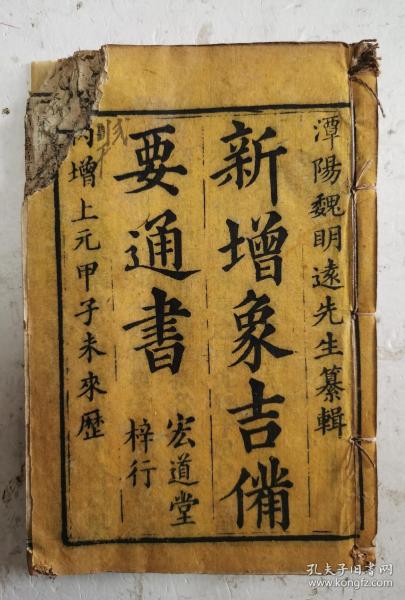 潭陽魏明遠先生纂輯
新增象吉備
要通書
宏道堂
梓行
內增上元甲子未來歷
孔夫子旧书网
www.kongfz.com